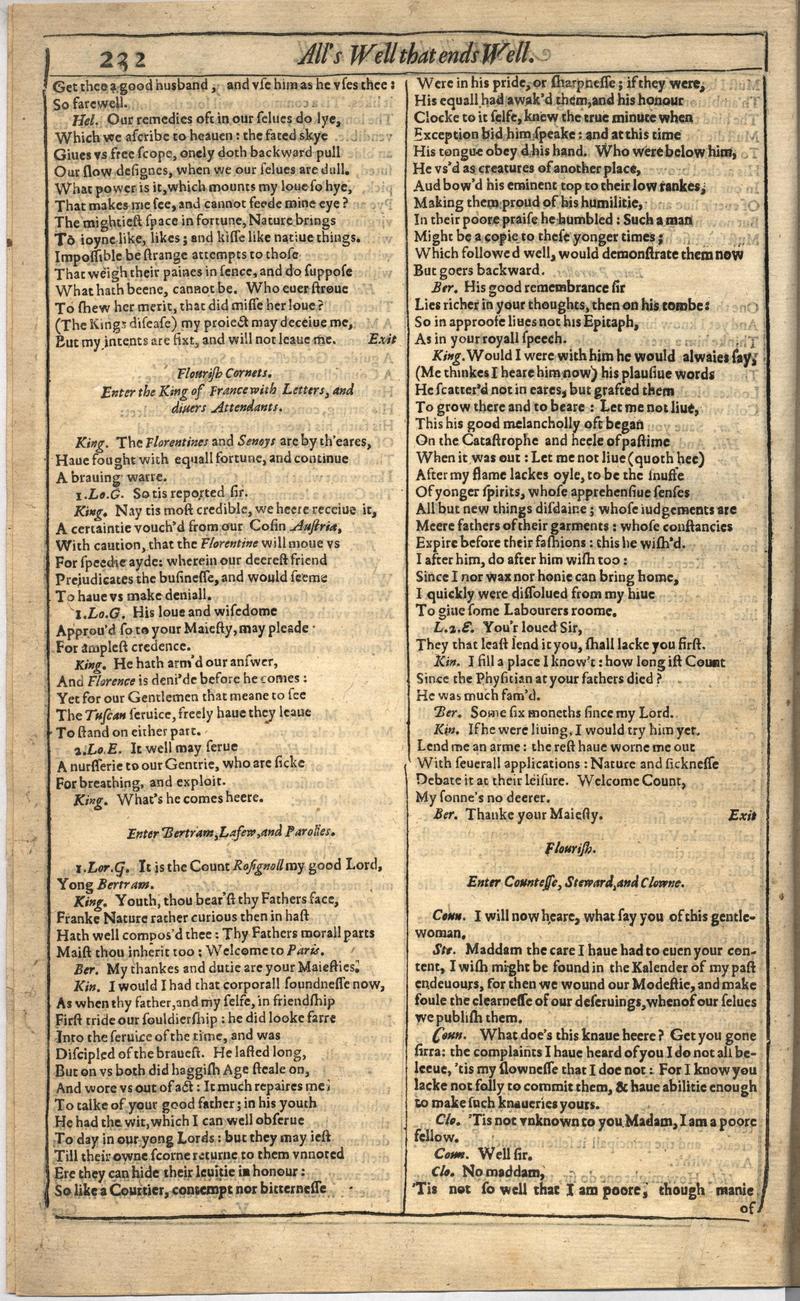 232
All's Well that ends Well.
Get thee a good husband, and vſe him as he vſes thee:
So farewell.
Hel. Our remedies oft in our ſelues do lye,
Which we aſcribe to heauen: the fated skye
Giues vs free ſcope, onely doth backward pull
Our ſlow deſignes, when we our ſelues are dull.
What power is it, which mounts my loue ſo hye,
That makes me ſee, and cannot feede mine eye?
The mightieſt ſpace in fortune, Nature brings
To ioyne like, likes; and kiſſe like natiue things.
Impoſſible be ſtrange attempts to thoſe
That weigh their paines in ſence, and do ſuppoſe
What hath beene, cannot be. Who euer ſtroue
To ſhew her merit, that did miſſe her loue?
(The Kings diſeaſe) my proiect may deceiue me,
But my intents are fixt, and will not leaue me. Exit
Flouriſh Cornets.
Enter the King of France with Letters, and
diuers Attendants.
King. The Florentines and Senoys are by th'eares,
Haue fought with equall fortune, and continue
A brauing warre.
1.Lo.G. So tis reported ſir.
King. Nay tis moſt credible, we heere receiue it,
A certaintie vouch'd from our Coſin Auſtria,
With caution, that the Florentine will moue vs
For ſpeedie ayde: wherein our deereſt friend
Prejudicates the buſineſſe, and would ſeeme
To haue vs make deniall.
1.Lo.G. His loue and wiſedome
Approu'd ſo to your Maieſty, may pleade
For ampleſt credence.
King. He hath arm'd our anſwer,
And Florence is deni'de before he comes:
Yet for our Gentlemen that meane to ſee
The Tuſcan ſeruice, freely haue they leaue
To ſtand on either part.
2.Lo.E. It well may ſerue
A nurſſerie to our Gentrie, who are ſicke
For breathing, and exploit.
King. What's he comes heere.
Enter Bertram, Lafew, and Parolles.
1.Lor.G. It is the Count Roſignoll my good Lord,
Yong Bertram.
King. Youth, thou bear'ſt thy Fathers face,
Franke Nature rather curious then in haſt
Hath well compos'd thee: Thy Fathers morall parts
Maiſt thou inherit too: Welcome to Paris.
Ber. My thankes and dutie are your Maieſties.
Kin. I would I had that corporall ſoundneſſe now,
As when thy father, and my ſelfe, in friendſhip
Firſt tride our ſouldierſhip: he did looke farre
Into the ſeruice of the time, and was
Diſcipled of the braueſt. He laſted long,
But on vs both did haggiſh Age ſteale on,
And wore vs out of act: It much repaires me
To talke of your good father; in his youth
He had the wit, which I can well obſerue
To day in our yong Lords: but they may ieſt
Till their owne ſcorne returne to them vnnoted
Ere they can hide their leuitie in honour:
So like a Courtier, contempt nor bitterneſſe
Were in his pride, or ſharpneſſe; if they were,
His equall had awak'd them, and his honour
Clocke to it ſelfe, knew the true minute when
Exception bid him ſpeake: and at this time
His tongue obey'd his hand. Who were below him,
He vs'd as creatures of another place,
Aud bow'd his eminent top to their low rankes,
Making them proud of his humilitie,
In their poore praiſe he humbled: Such a man
Might be a copie to theſe yonger times;
Which followed well, would demonſtrate them now
But goers backward.
Ber. His good remembrance ſir
Lies richer in your thoughts, then on his tombe:
So in approofe liues not his Epitaph,
As in your royall ſpeech.
King. Would I were with him he would alwaies ſay,
(Me thinkes I heare him now) his plauſiue words
He ſcatter'd not in eares, but grafted them
To grow there and to beare: Let me not liue,
This his good melancholly oft began
On the Cataſtrophe and heele of paſtime
When it was out: Let me not liue (quoth hee)
After my flame lackes oyle, to be the ſnuffe
Of yonger ſpirits, whoſe apprehenſiue ſenſes
All but new things diſdaine; whoſe iudgements are
Meere fathers of their garments: whoſe conſtancies
Expire before their faſhions: this he wiſh'd.
I after him, do after him wiſh too:
Since I nor wax nor honie can bring home,
I quickly were diſſolued from my hiue
To giue ſome Labourers roome.
L.2.E. You'r loued Sir,
They that leaſt lend it you, ſhall lacke you firſt.
Kin. I fill a place I know't: how long iſt Count
Since the Phyſitian at your fathers died?
He was much fam'd.
Ber. Some ſix moneths ſince my Lord.
Kin. If he were liuing, I would try him yet.
Lend me an arme: the reſt haue worne me out
With ſeuerall applications: Nature and ſickneſſe
Debate it at their leiſure. Welcome Count,
My ſonne's no deerer.
Ber. Thanke your Maieſty. Exit
Flouriſh.
Enter Counteſſe, Steward, and Clowne.
Coun. I will now heare, what ſay you of this gentle-
woman.
Ste. Maddam the care I haue had to euen your con-
tent, I wiſh might be found in the Kalender of my paſt
endeuours, for then we wound our Modeſtie, and make
foule the clearneſſe of our deſeruings, when of our ſelues
we publiſh them.
Coun. What doe's this knaue heere? Get you gone
ſirra: the complaints I haue heard of you I do not all be-
leeue, 'tis my ſlowneſſe that I doe not: For I know you
lacke not folly to commit them, & haue abilitie enough
to make ſuch knaueries yours.
Clo. 'Tis not vnknown to you Madam, I am a poore
fellow.
Coun. Well ſir.
Clo. No maddam,
'Tis not ſo well that I am poore, though manie
of